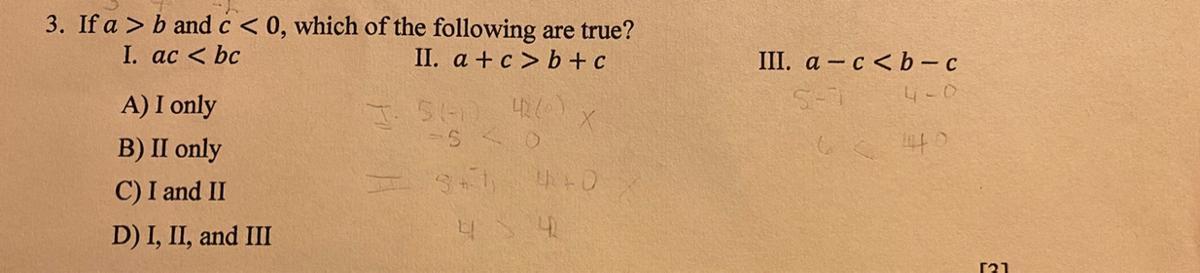 3. If a > b and c < 0, which of the following are true?
I. ac < bc II. a + c > b + c III. a – c < b – c
5-7 4-0
A) I only
I. 5(-1) 4(0) X
-5 < 0
B) II only
6 < 4+0
C) I and II
II 4+0
D) I, II, and III
4 > 4
[3]